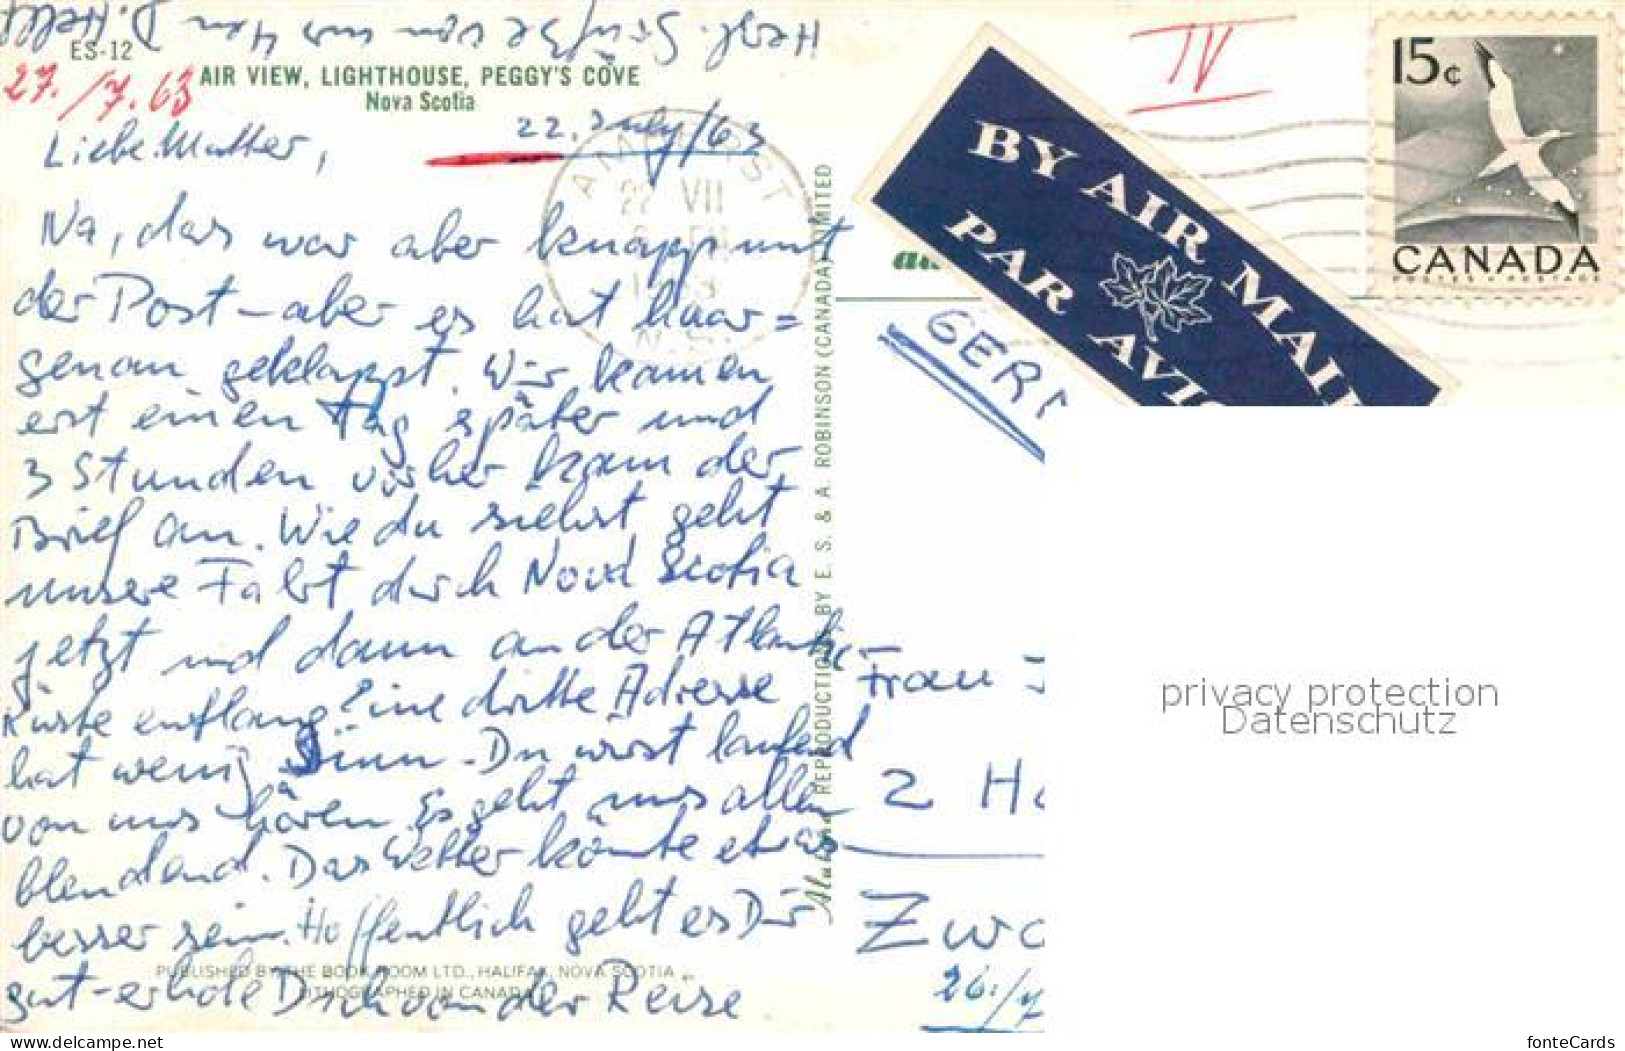 Herzl. Grüße von uns 4en D. Held
ES-12
AIR VIEW, LIGHTHOUSE, PEGGY'S COVE
Nova Scotia
27./7.63
22. July/63
Liebe Mutter,
Na, das war aber knapp mit
der Post - aber es hat haar=
genau geklappt. Wir kamen
erst einen Tag später und
3 Stunden vorher kam der
Brief an. Wie du siehst geht
unsere Fahrt durch Nova Scotia
jetzt und dann an der Atlantic-
Küste entlang. Eine dritte Adresse
hat wenig Sinn. Du wirst laufend
von uns hören. Es geht uns allen
blendend. Das Wetter könnte etwas
besser sein. Hoffentlich geht es Dir
gut - erhole Dich von der Reise
PUBLISHED BY THE BOOK ROOM LTD., HALIFAX, NOVA SCOTIA
LITHOGRAPHED IN CANADA
REPRODUCTION BY E. S. & A. ROBINSON (CANADA) LIMITED
AMHERST
22 VII
IV
BY AIR MAIL
PAR AVIO
15c
CANADA
POSTES · POSTAGE
GER
Frau
2 Ha
Zwo
26./7
privacy protection
Datenschutz
delcampe.net
fonteCards